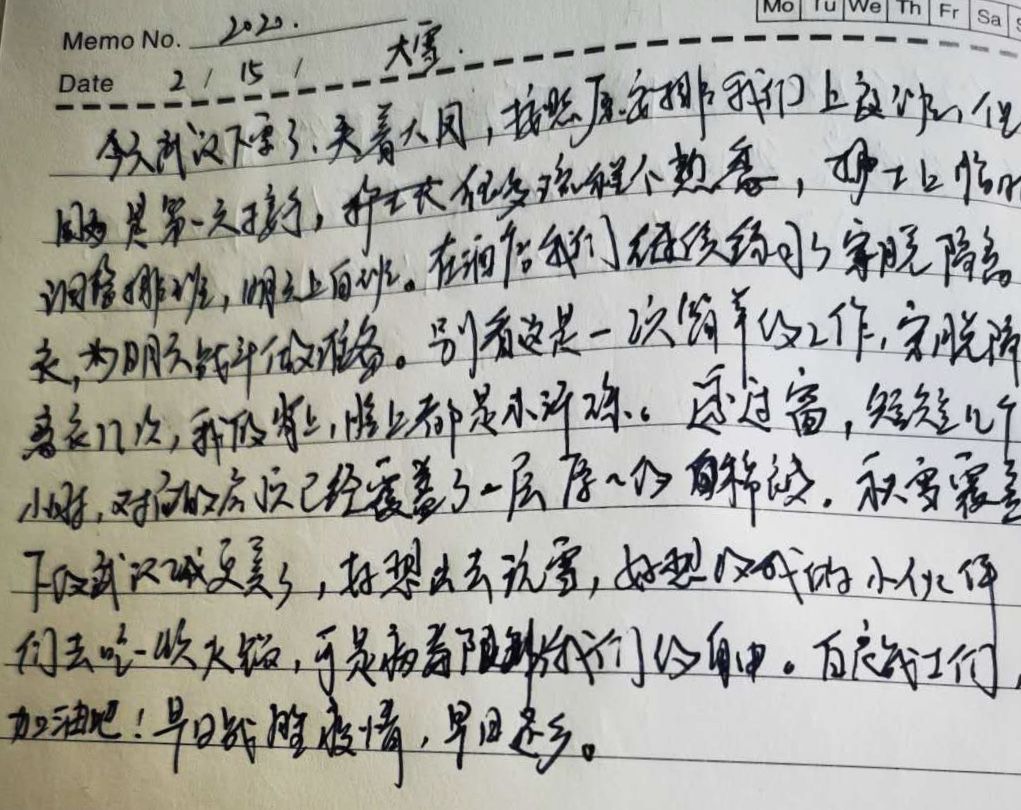 Mo Tu We Th Fr Sa
Memo No. 2020.
Date 2 / 15 / 大雪.
今天武汉下雪了、夹着大风，按照原安排我们上夜班，但
因为是第一次接手，很多流程不熟悉，护士长临时
调整排班，明天上白班。在酒店我们继续练习穿脱隔离
衣，为明天战斗做准备。别看这是一次简单的工作，穿脱隔
离衣几次，我的背上，脸上都是水汗珠。透过窗，短短几个
小时，对面的房顶已经覆盖了一层厚厚的白棉被。积雪覆盖
下的武汉城更美了，好想出去玩雪，好想和我的小伙伴
们去吃一次火锅，可是病毒阻挡我们的自由。白衣战士们，
加油吧！早日战胜疫情，早日还乡。